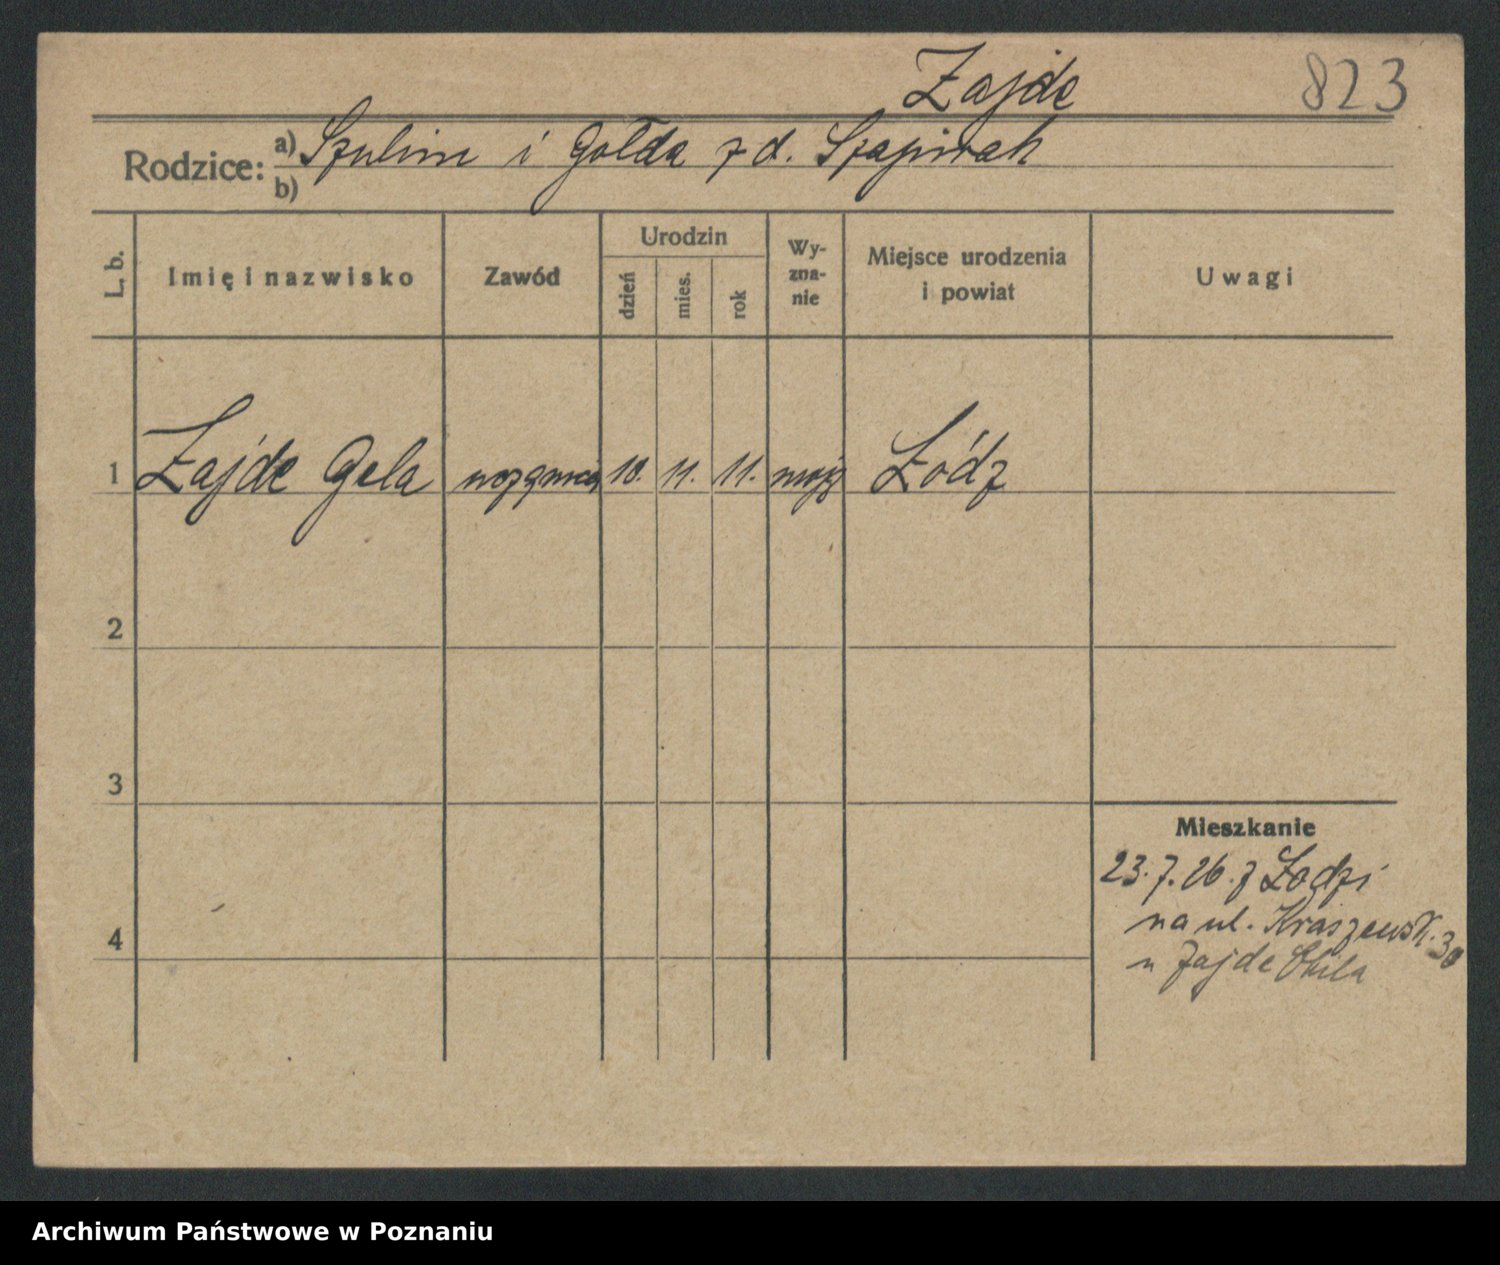 Zajde 823
Rodzice: a) Szulim i Gołda z d. Szapirak
b)
L. b. Imię i nazwisko Zawód Urodzin dzień mies. rok Wy-zna-nie Miejsce urodzenia i powiat Uwagi
1 Zajde Gela 10. 11. 11. mojż Łódz
2
3
Mieszkanie
23.7.26. z Łodzi
4 na ul. Kraszewsk. 30
u Zajde
Archiwum Państwowe w Poznaniu